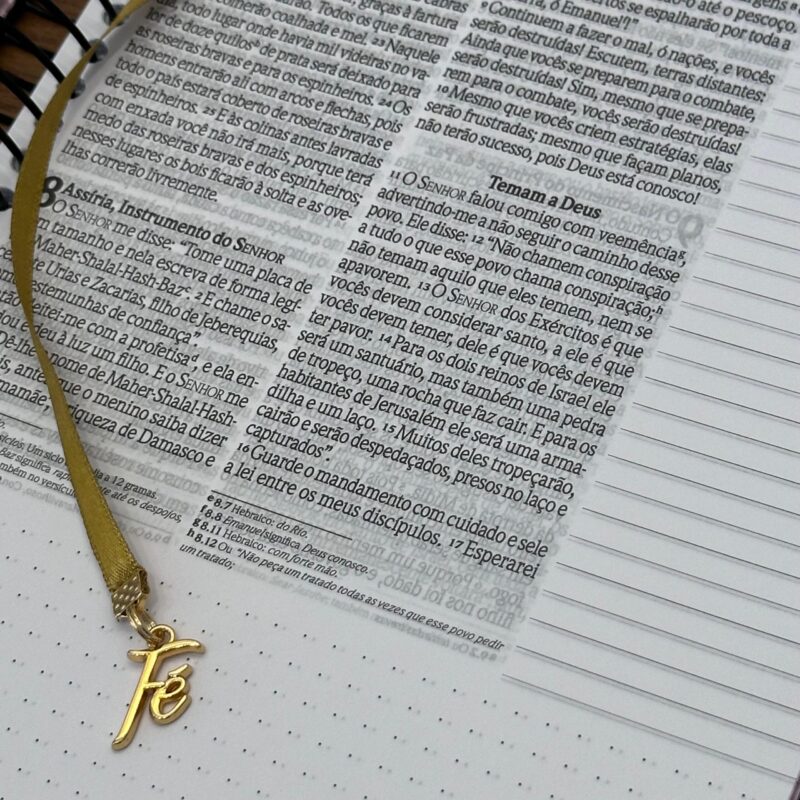 graças à fartura
colherão coalhada e mel. Todos os que ficarem
todo lugar onde havia mil videiras no va-
lor de doze quilos de prata será deixado para
as roseiras bravas e para os espinheiros. 24 Os
homens entrarão ali com arcos e flechas, pois
todo o país estará coberto de roseiras bravas e
de espinheiros. 25 E às colinas antes lavradas
com enxada você não irá mais, porque terá
medo das roseiras bravas e dos espinheiros;
nesses lugares os bois ficarão à solta e as ove-
lhas correrão livremente.
8 Assíria, Instrumento do SENHOR
O SENHOR me disse: "Tome uma placa de
tamanho e nela escreva de forma legí-
Maher-Shalal-Hash-Baz. 2 E chame o sa-
Urias e Zacarias, filho de Jeberequias,
testemunhas de confiança".
deitei-me com a profetisa d, e ela en-
e deu à luz um filho. E o SENHOR me
Dê-lhe o nome de Maher-Shalal-Hash-
antes que o menino saiba dizer
mamãe', a riqueza de Damasco e
siclos. Um siclo
a 12 gramas.
Baz significa
até os despojos,
também no versículo
se espalharão por toda a
ó Emanuel!"
9 Continuem a fazer o mal, ó nações, e vocês
serão destruídas! Escutem, terras distantes:
Ainda que vocês se preparem para o combate,
serão destruídas! Sim, mesmo que se prepa-
rem para o combate, vocês serão destruídas!
10 Mesmo que vocês criem estratégias, elas
serão frustradas; mesmo que façam planos,
não terão sucesso, pois Deus está conosco!
Temam a Deus
11 O SENHOR falou comigo com veemência g,
advertindo-me a não seguir o caminho desse
povo. Ele disse: 12 "Não chamem conspiração
a tudo o que esse povo chama conspiração; h
não temam aquilo que eles temem, nem se
apavorem. 13 O SENHOR dos Exércitos é que
vocês devem considerar santo, a ele é que
vocês devem temer, dele é que vocês devem
ter pavor. 14 Para os dois reinos de Israel ele
será um santuário, mas também uma pedra
de tropeço, uma rocha que faz cair. E para os
habitantes de Jerusalém ele será uma arma-
dilha e um laço. 15 Muitos deles tropeçarão,
cairão e serão despedaçados, presos no laço e
capturados".
16 Guarde o mandamento com cuidado e sele
a lei entre os meus discípulos. 17 Esperarei
e 8.7 Hebraico: do Rio.
f 8.8 Emanuel significa Deus conosco.
g 8.11 Hebraico: com forte mão.
h 8.12 Ou "Não peça um tratado todas as vezes que esse povo pedir
um tratado;
Fé